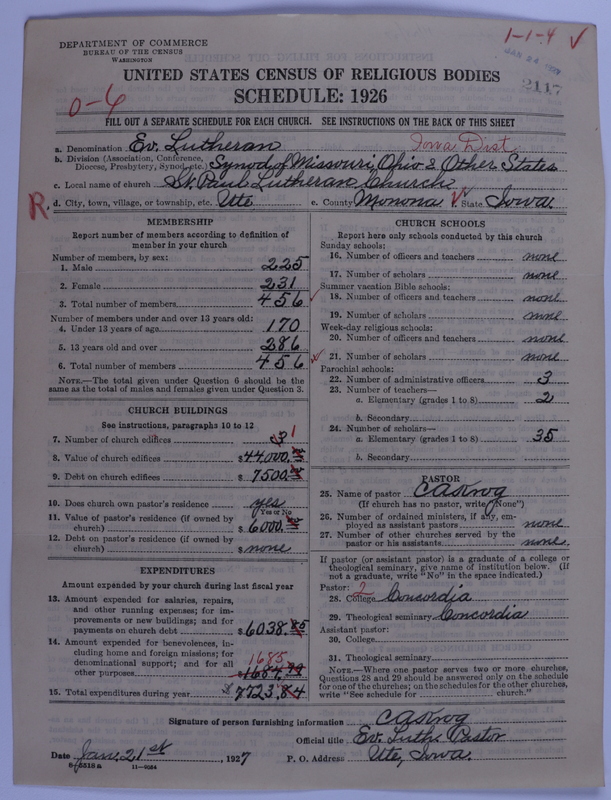 DEPARTMENT OF COMMERCE
BUREAU OF THE CENSUS
WASHINGTON
1-1-4 ✓
2117
UNITED STATES CENSUS OF RELIGIOUS BODIES
SCHEDULE: 1926
0-6
FILL OUT A SEPARATE SCHEDULE FOR EACH CHURCH. SEE INSTRUCTIONS ON THE BACK OF THIS SHEET
a. Denomination Ev. Lutheran Iowa Dist
b. Division (Association, Conference, Diocese, Presbytery, Synod, etc.) Synod of Missouri, Ohio & Other States
c. Local name of church St. Paul Lutheran Church
R. d. City, town, village, or township, etc. Ute e. County Monona ✓ State Iowa
MEMBERSHIP
Report number of members according to definition of
member in your church
Number of members, by sex:
1. Male 225
2. Female 231
3. Total number of members 456
Number of members under and over 13 years old:
4. Under 13 years of age 170
5. 13 years old and over 286
6. Total number of members 456
NOTE.—The total given under Question 6 should be the
same as the total of males and females given under Question 3.
CHURCH BUILDINGS
See instructions, paragraphs 10 to 12
7. Number of church edifices 3 1
8. Value of church edifices $44000.
9. Debt on church edifices $7500.
10. Does church own pastor's residence yes
Yes or No
11. Value of pastor's residence (if owned by
church) $6000.
12. Debt on pastor's residence (if owned by
church) $none
EXPENDITURES
Amount expended by your church during last fiscal year
13. Amount expended for salaries, repairs,
and other running expenses; for im-
provements or new buildings; and for
payments on church debt $6038.85
14. Amount expended for benevolences, in-
cluding home and foreign missions; for
denominational support; and for all
other purposes 1685 1684.99
15. Total expenditures during year $7723.84
CHURCH SCHOOLS
Report here only schools conducted by this church
Sunday schools:
16. Number of officers and teachers none
17. Number of scholars none
Summer vacation Bible schools:
18. Number of officers and teachers none
19. Number of scholars none
Week-day religious schools:
20. Number of officers and teachers none
21. Number of scholars none
Parochial schools:
22. Number of administrative officers 3
23. Number of teachers—
a. Elementary (grades 1 to 8) 2
b. Secondary
24. Number of scholars—
a. Elementary (grades 1 to 8) 35
b. Secondary
PASTOR
25. Name of pastor
(If church has no pastor, write "None")
26. Number of ordained ministers, if any, em-
ployed as assistant pastors none
27. Number of other churches served by the
pastor or his assistants none
If pastor (or assistant pastor) is a graduate of a college or
theological seminary, give name of institution below. (If
not a graduate, write "No" in the space indicated.)
Pastor: 2
28. College Concordia
29. Theological seminary Concordia
Assistant pastor:
30. College
31. Theological seminary
NOTE.—Where one pastor serves two or more churches,
Questions 28 and 29 should be answered only on the schedule
for one of the churches; on the schedules for the other churches,
write "See schedule for church."
Signature of person furnishing information
Official title Ev. Luth. Pastor
Date Jan. 21st, 1927 P. O. Address Ute, Iowa.
8-6518a 11—9054